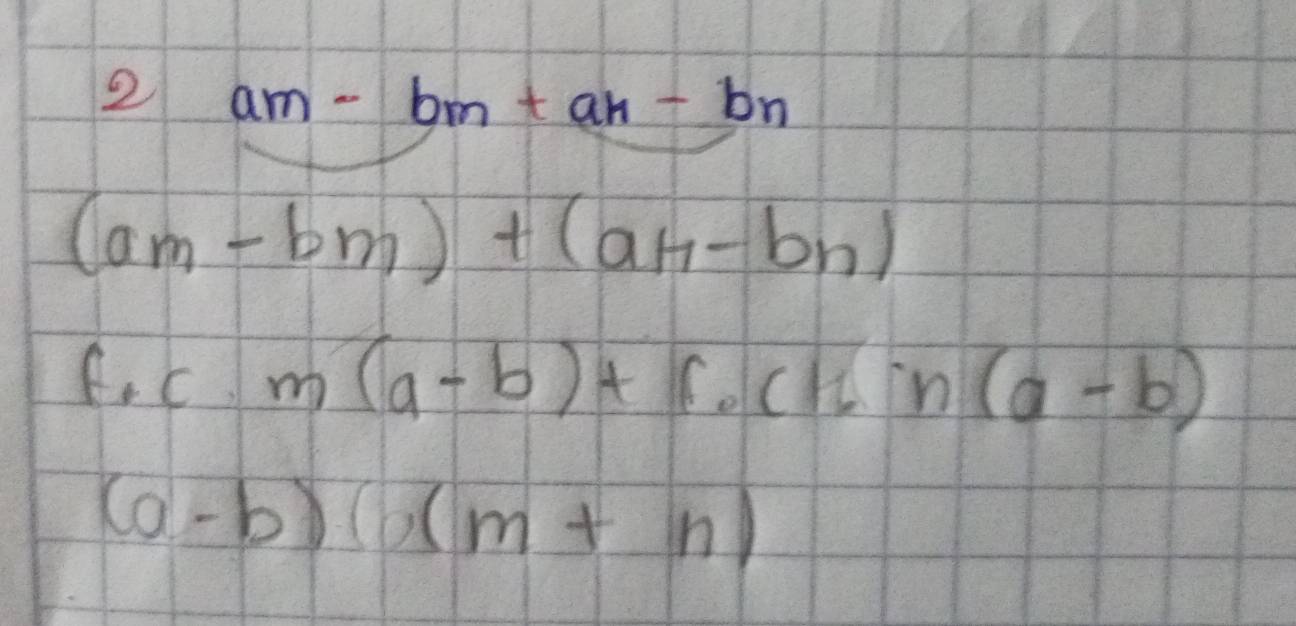 2 am - bm + an - bn
(am - bm) + (an - bn)
f.c. m (a - b) + f.c n (a - b)
(a - b) (m + n)